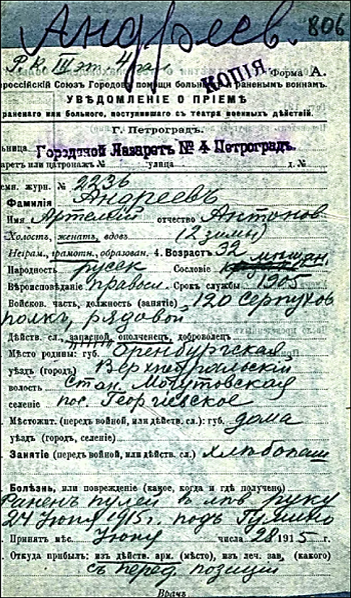 Андреев. 806
Р.К. III эт. 4 пал.
КОПІЯ
Форма А.
ероссійскій Союзъ Городовъ помощи больнымъ и раненымъ воинамъ.
УВѢДОМЛЕНІЕ О ПРІЕМѢ
раненаго или больного, поступившаго съ театра военныхъ дѣйствій.
Г. Петроградъ.
ьница Городской Лазаретъ № 4 Петроградъ.
аретъ или патронажъ № улица д. №
емн. журн. № 2236
Фамилія Андреевъ
Имя Артемій отчество Антонов
Холостъ, женатъ, вдовъ (2 зимы)
Неграм., грамотн., образован. 4. Возрастъ 32 мѣщан.
Народность русск Сословіе
Вѣроисповѣданіе Правосл. Срокъ службы 1905
Войсков. часть, должность (занятіе) 120 Серпухов
полк, рядовой
Дѣйств. сл., запасной, ополченецъ, доброволец
Мѣсто родины: губ. Оренбургская
уѣздъ (городъ) Верхнеуральскій
волость Стан. Могутовская
селеніе пос. Георгіевское
Мѣстожит. (передъ войной, или дѣйств. сл.): губ. дома
уѣздъ (городъ, селеніе)
Занятіе (передъ войной, или дѣйств. сл.) хлѣбопаш
Болѣзнь, или поврежденіе (какое, когда и гдѣ получено)
Ранен пулей в лѣв руку
24 Июня 1915 г. подъ
Принятъ мѣс. Июню числа 28 1915 г.
Откуда прибылъ: изъ дѣйств. арм. (мѣсто), изъ леч. зав. (какого)
съ перед. позиціи
Врачъ